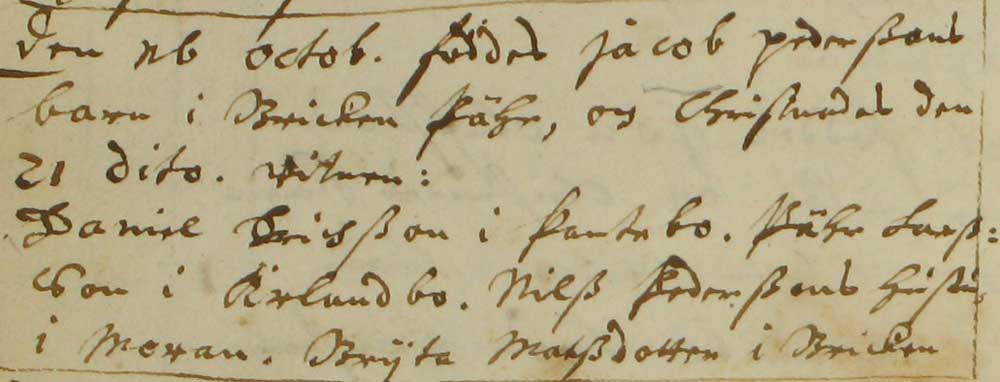 Den 16 octob. föddes Jacob pederßons
barn i Bricken Pähr, og Christnades den
21 dito. Vitnen:
Daniel Erichßon i Pantebo. Pähr Larß=
Son i Kirlandbo. Nilß Pederßons Hustru
i Moran. Brÿta Matßdotter i Bricken